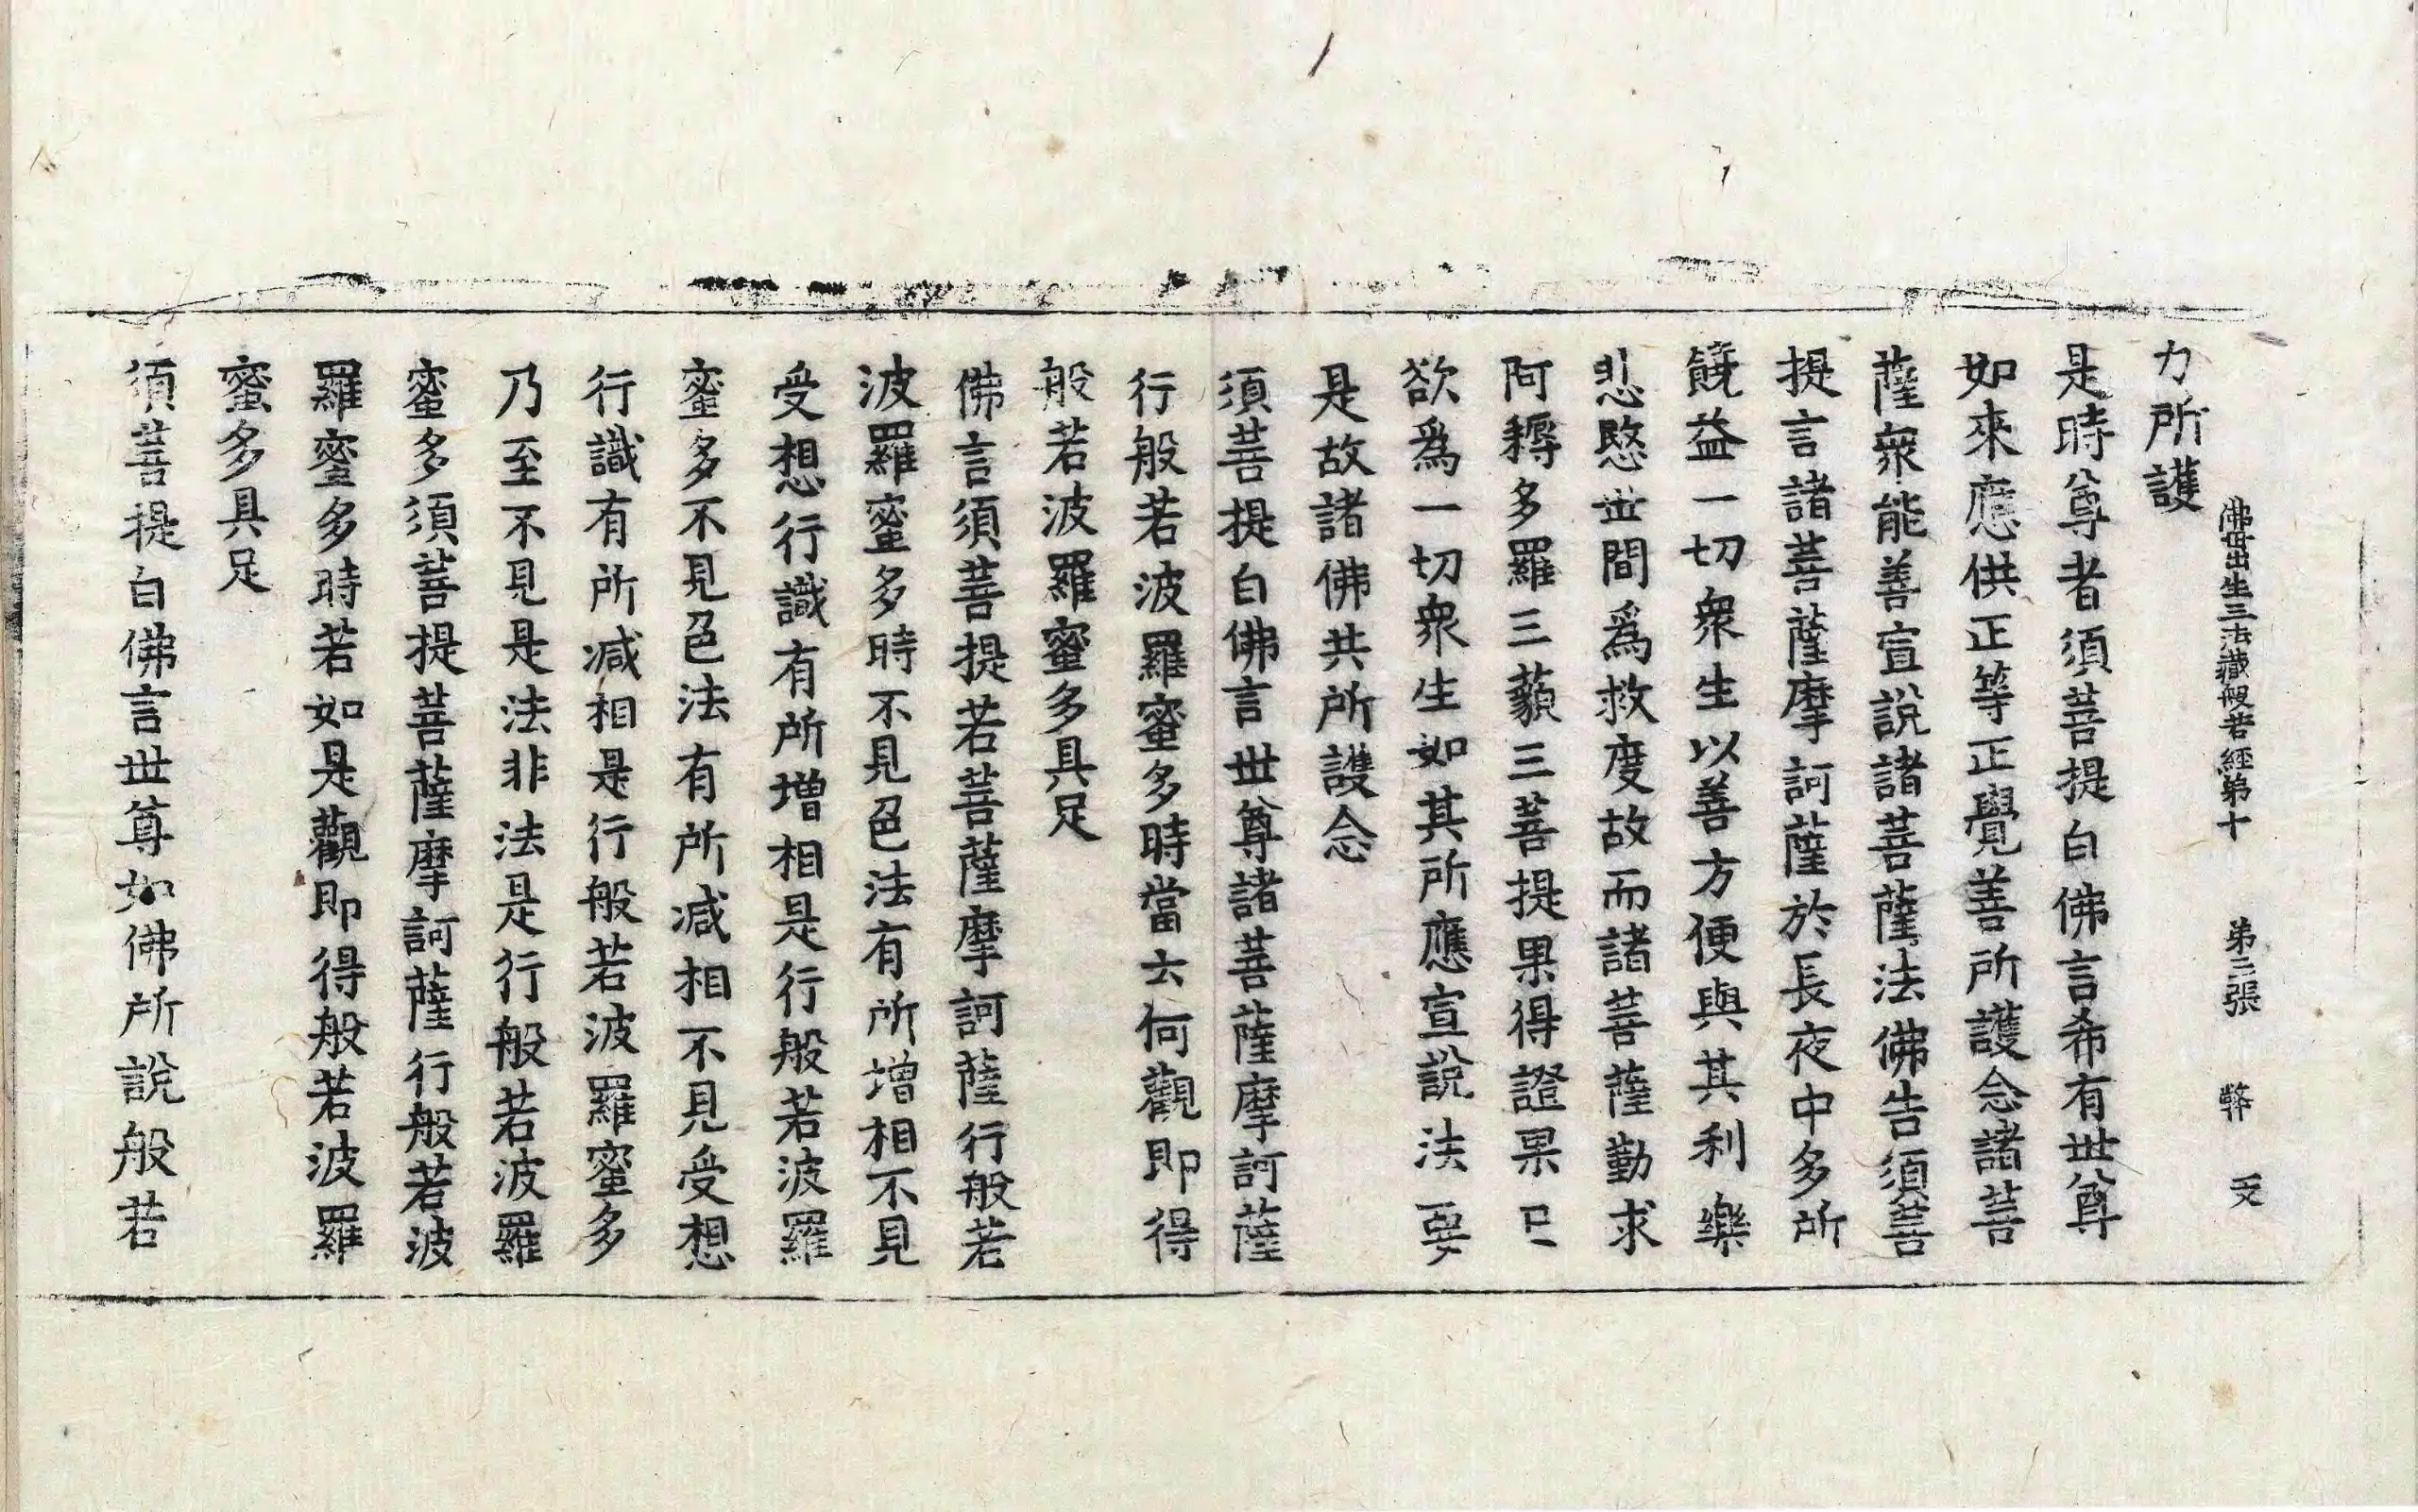 佛母出生三法藏般若經第十 第二張 弊 受
力所護
是時尊者須菩提白佛言希有世尊
如來應供正等正覺善所護念諸菩
薩衆能善宣說諸菩薩法佛告須菩
提言諸菩薩摩訶薩於長夜中多所
饒益一切衆生以善方便與其利樂
悲愍世間爲救度故而諸菩薩勤求
阿耨多羅三藐三菩提果得證果已
欲爲一切衆生如其所應宣說法要
是故諸佛共所護念
須菩提白佛言世尊諸菩薩摩訶薩
行般若波羅蜜多時當云何觀即得
般若波羅蜜多具足
佛言須菩提若菩薩摩訶薩行般若
波羅蜜多時不見色法有所增相不見
受想行識有所增相是行般若波羅
蜜多不見色法有所減相不見受想
行識有所減相是行般若波羅蜜多
乃至不見是法非法是行般若波羅
蜜多須菩提菩薩摩訶薩行般若波
羅蜜多時若如是觀即得般若波羅
蜜多具足
須菩提白佛言世尊如佛所說般若